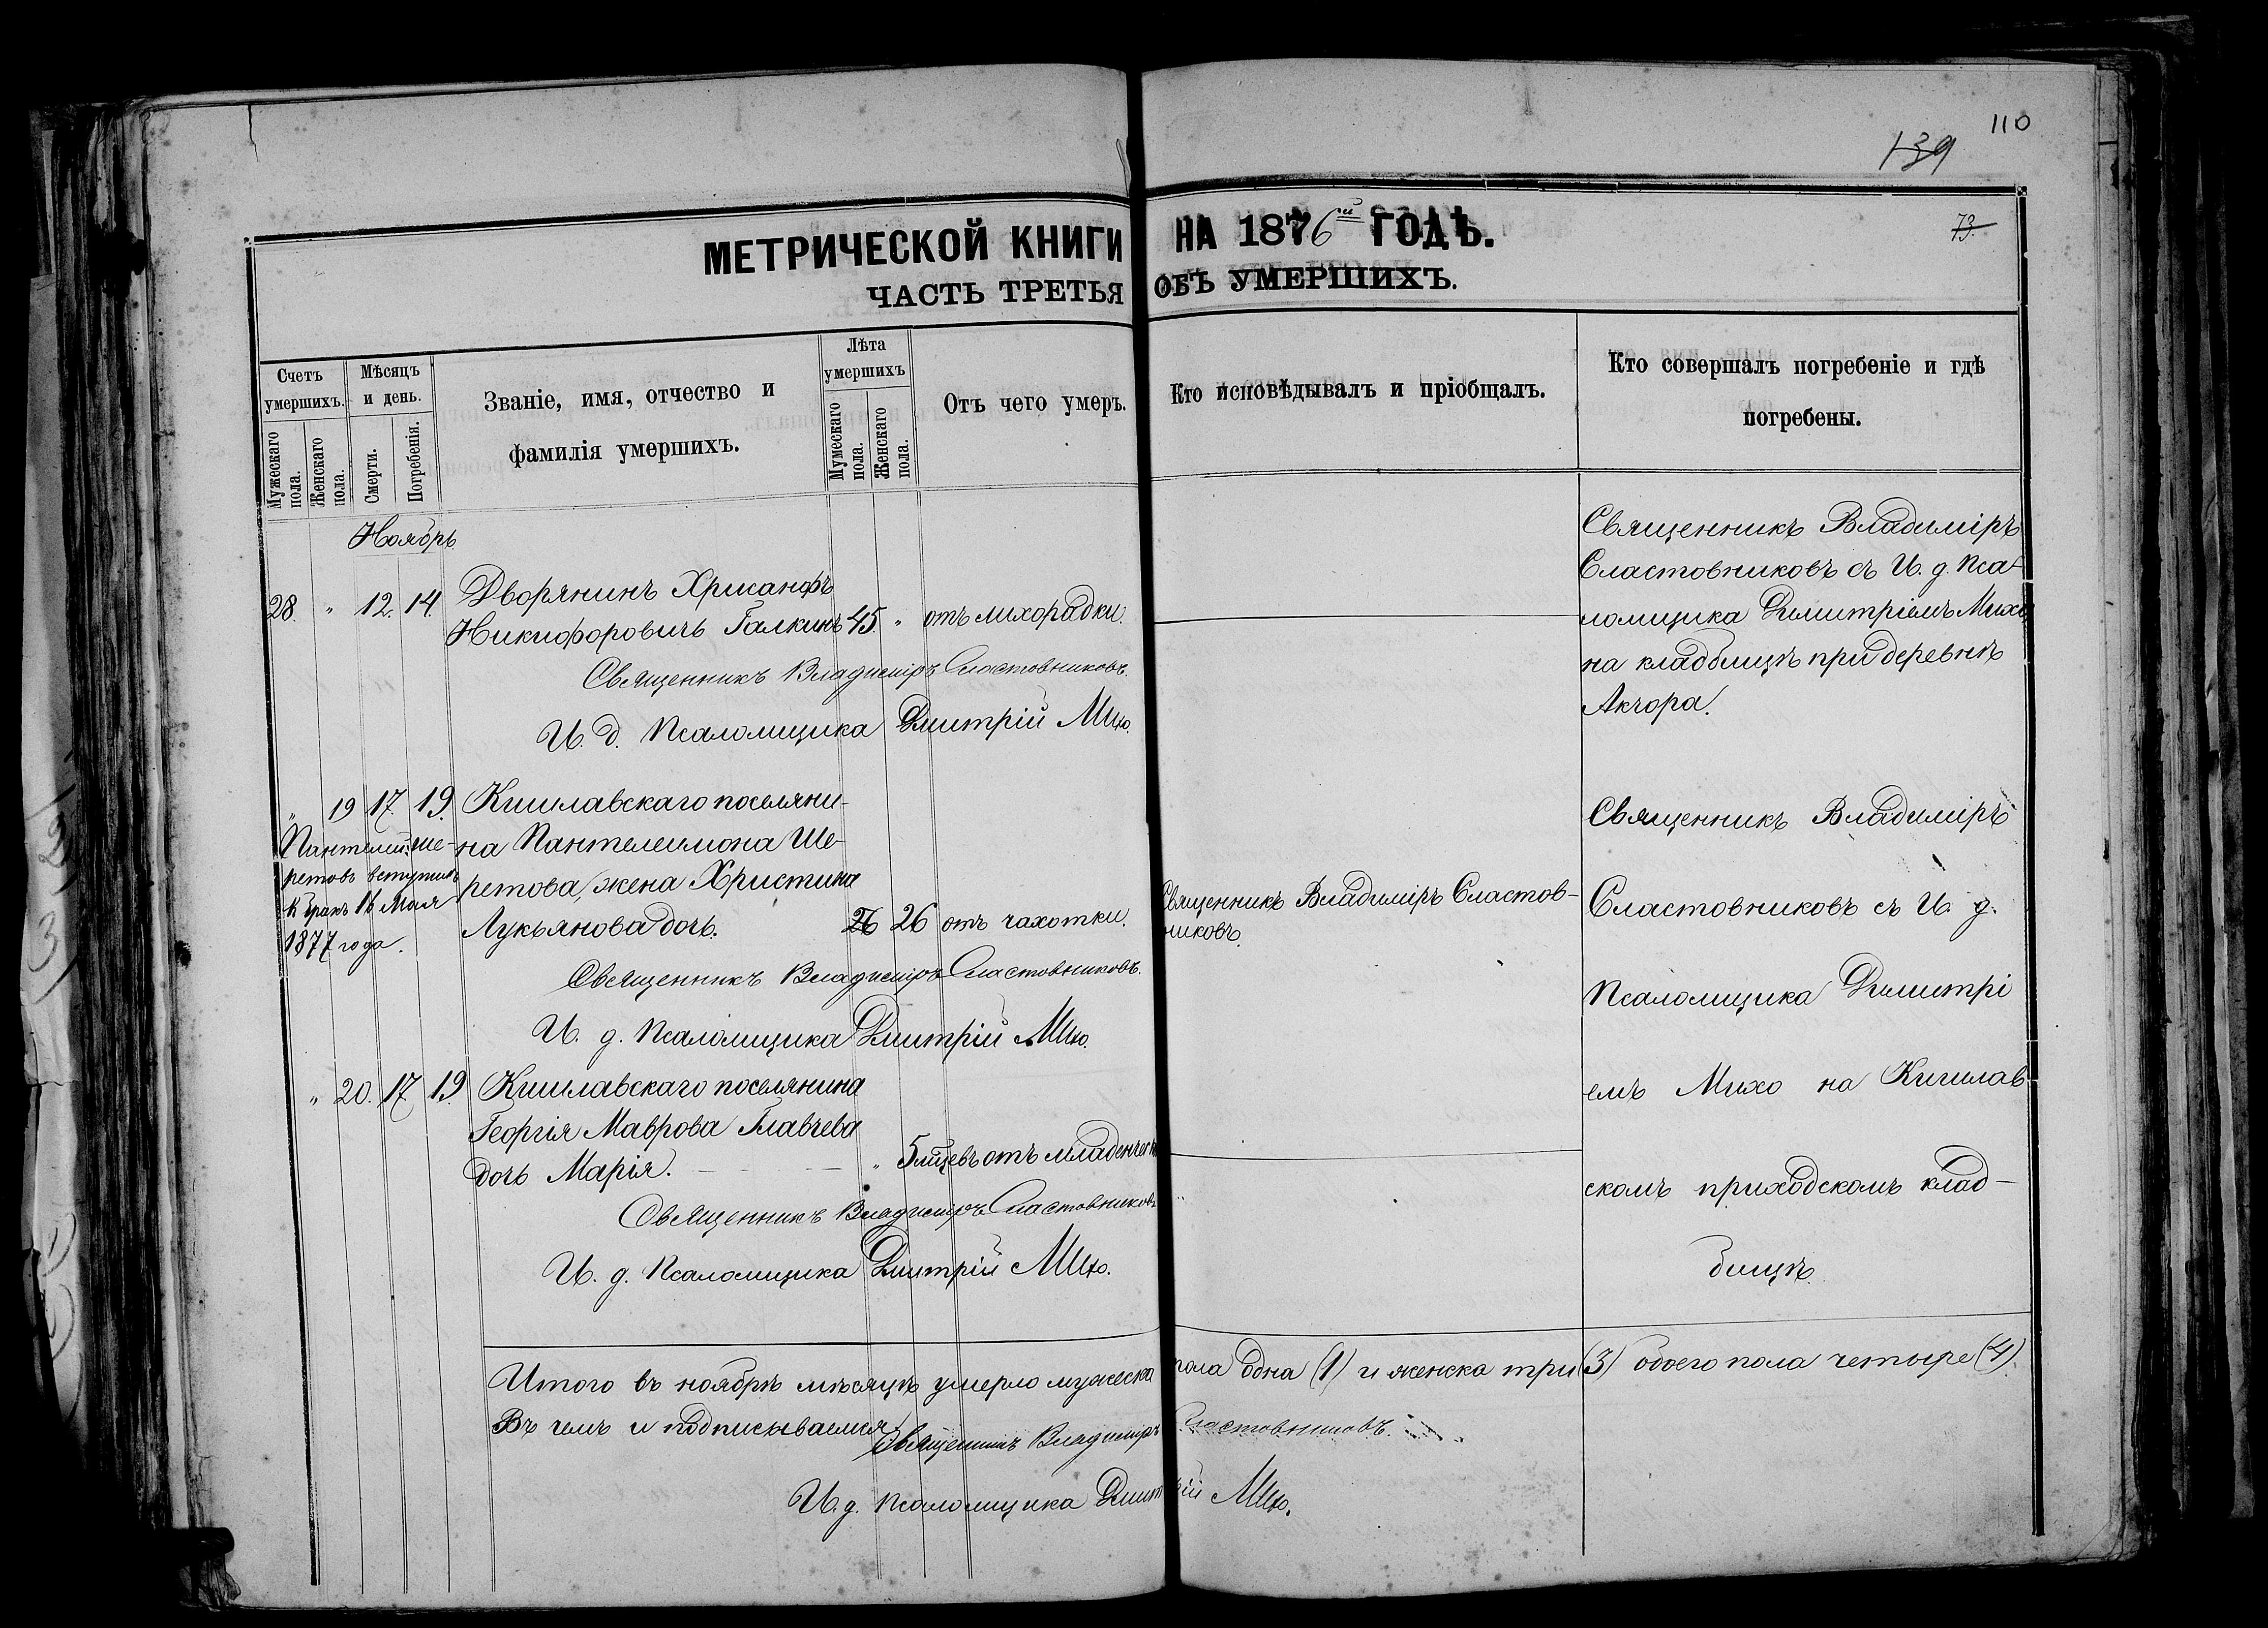 110
139
МЕТРИЧЕСКОЙ КНИГИ НА 1876й ГОДЪ.
73.
ЧАСТЬ ТРЕТЬЯ ОБЪ УМЕРШИХЪ.
Счетъ умершихъ.
Мужескаго пола.
Женскаго пола.
Мѣсяцъ и день.
Смерти.
Погребенія.
Званіе, имя, отчество и
фамилія умершихъ.
Лѣта умершихъ
Мужескаго пола.
Женскаго пола.
Отъ чего умеръ.
Кто исповѣдывалъ и пріобщалъ.
Кто совершалъ погребеніе и гдѣ
погребены.
Ноябрь
28. " 12. 14. Дворянинъ Хрисанфъ
Никифоровичъ Галкинъ 45. " отъ лихорадки.
Священникъ Владиміръ Сластовниковъ.
И. д. Псаломщика Дмитрій Михо.
Священникъ Владиміръ
Сластовниковъ съ И. д. Пса-
ломщика Димитріемъ Михо
на кладбищѣ при деревнѣ
Акчора.
" 19 17. 19. Кишлавскаго поселяни-
на Пантелеимона Ше-
ретова, жена Христина
Лукьянова дочь. 26 26 отъ чахотки.
Пантелей Ше-
ретовъ вступилъ
въ бракъ 16 Мая
1877 года.
Священникъ Владиміръ Сластовниковъ.
И. д. Псаломщика Дмитрій Михо.
Священникъ Владиміръ Сластов-
никовъ.
" 20. 17 19. Кишлавскаго поселянина
Георгія Маврова Главчева
дочь Марія. " 5 мцевъ отъ младенческ
Священникъ Владиміръ Сластовниковъ
И. д. Псаломщика Дмитрій Михо.
Священникъ Владиміръ
Сластовниковъ съ И. д.
Псаломщика Димитрі
емъ Михо на Кишлав-
скомъ приходскомъ клад-
бищѣ.
Итого въ ноябрѣ мѣсяцѣ умерло мужеска пола одна (1) и женска три (3) обоего пола четыре (4).
Въ чемъ и подписываемся Священникъ Владиміръ Сластовниковъ.
И. д. псаломщика Дмитрій Михо.